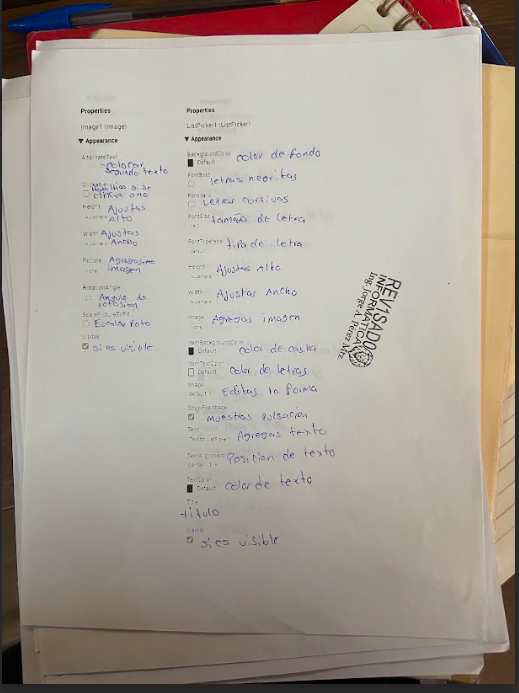 Properties
Image1 (Image)
▼ Appearance
AlternateText
colocar
segundo texto
Clickable
clickea o no
Height
Ajustas
Alto
Width
Ajustas
Ancho
Picture
imagen
RotationAngle
Angulo de
rotasion
ScalePictureToFit
Escalar foto
Visible
si es visible
Properties
ListPicker1 (ListPicker)
▼ Appearance
BackgroundColor
Default
color de fondo
FontBold
letras negritas
FontItalic
Letras cursivas
FontSize
tamaño de letra
FontTypeface
tipo de letra
Height
Ajustas Alto
Width
Ajustas Ancho
Image
Agregas imagen
ItemBackgroundColor
Default
color de casilla
ItemTextColor
Default
color de letras
Shape
default
Editas la forma
ShowFeedback
muestras pulsación
Text
Agregas texto
TextAlignment
center : 1
Posicion de texto
TextColor
Default
color de texto
Title
titulo
Visible
si es visible
REVISADO
INFORMATICA
Ing. Jorge A. Pérez Mtz.